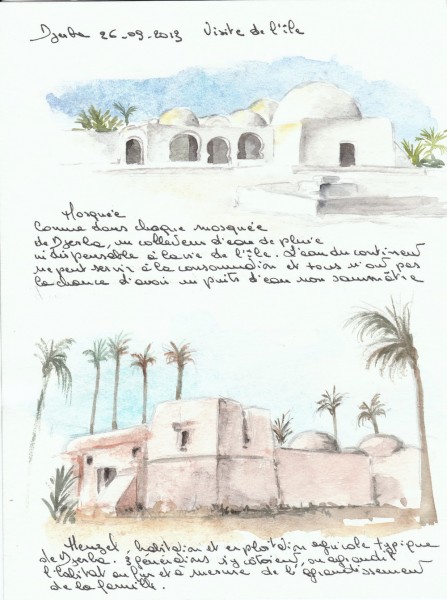 Djerba 26-09-2013 Visite de l'île
Mosquée
Comme dans chaque mosquée
de Djerba, un collecteur d'eau de pluie
indispensable à la vie de l'île. L'eau du continent
ne peut servir à la consommation et tous n'ont pas
la chance d'avoir un puits d'eau non saumâtre
Menzel, habitation et exploitation agricole typique
de Djerba. 3 générations s'y côtoient, on agrandit
l'habitat au fur et à mesure de l'agrandissement
de la famille.